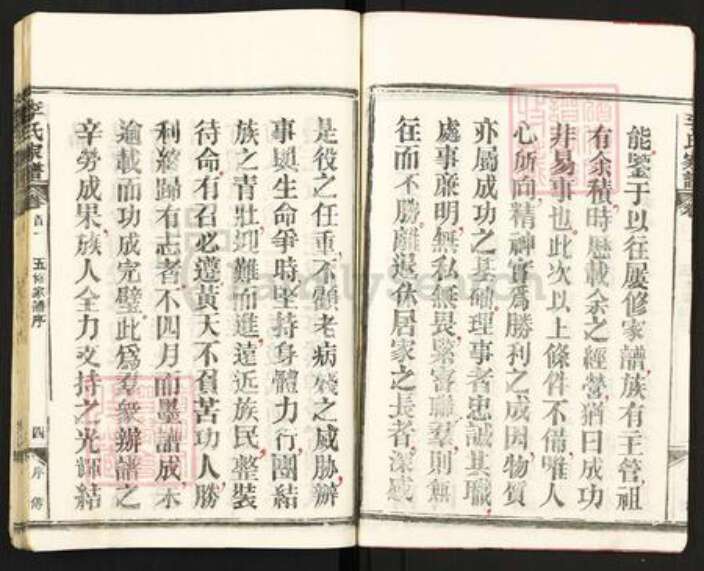 能鑒于以往屢修家譜族有主管祖
有余積時歷載余之經營猶曰成功
非易事也此次以上條件不備唯人
心所向精神實為勝利之成因物質
亦屬成功之基礎理事者忠誠其職
處事廉明無私無畏緊密聯羣則無
往而不勝離退休居家之長者深感
是役之任重不顧老病殘之威胁辦
事與生命爭時堅持身體力行團結
族之青壯迎難而進遠近族民整裝
待命有召必遵黃天不負苦功人勝
利總歸有志者不四月而墨譜成未
逾載而功成完璧此為羣衆辦譜之
辛勞成果族人全力支持之光輝結
李氏家譜
卷首
五修家譜序
四
序傳
李氏家譜
卷
FamilySearch